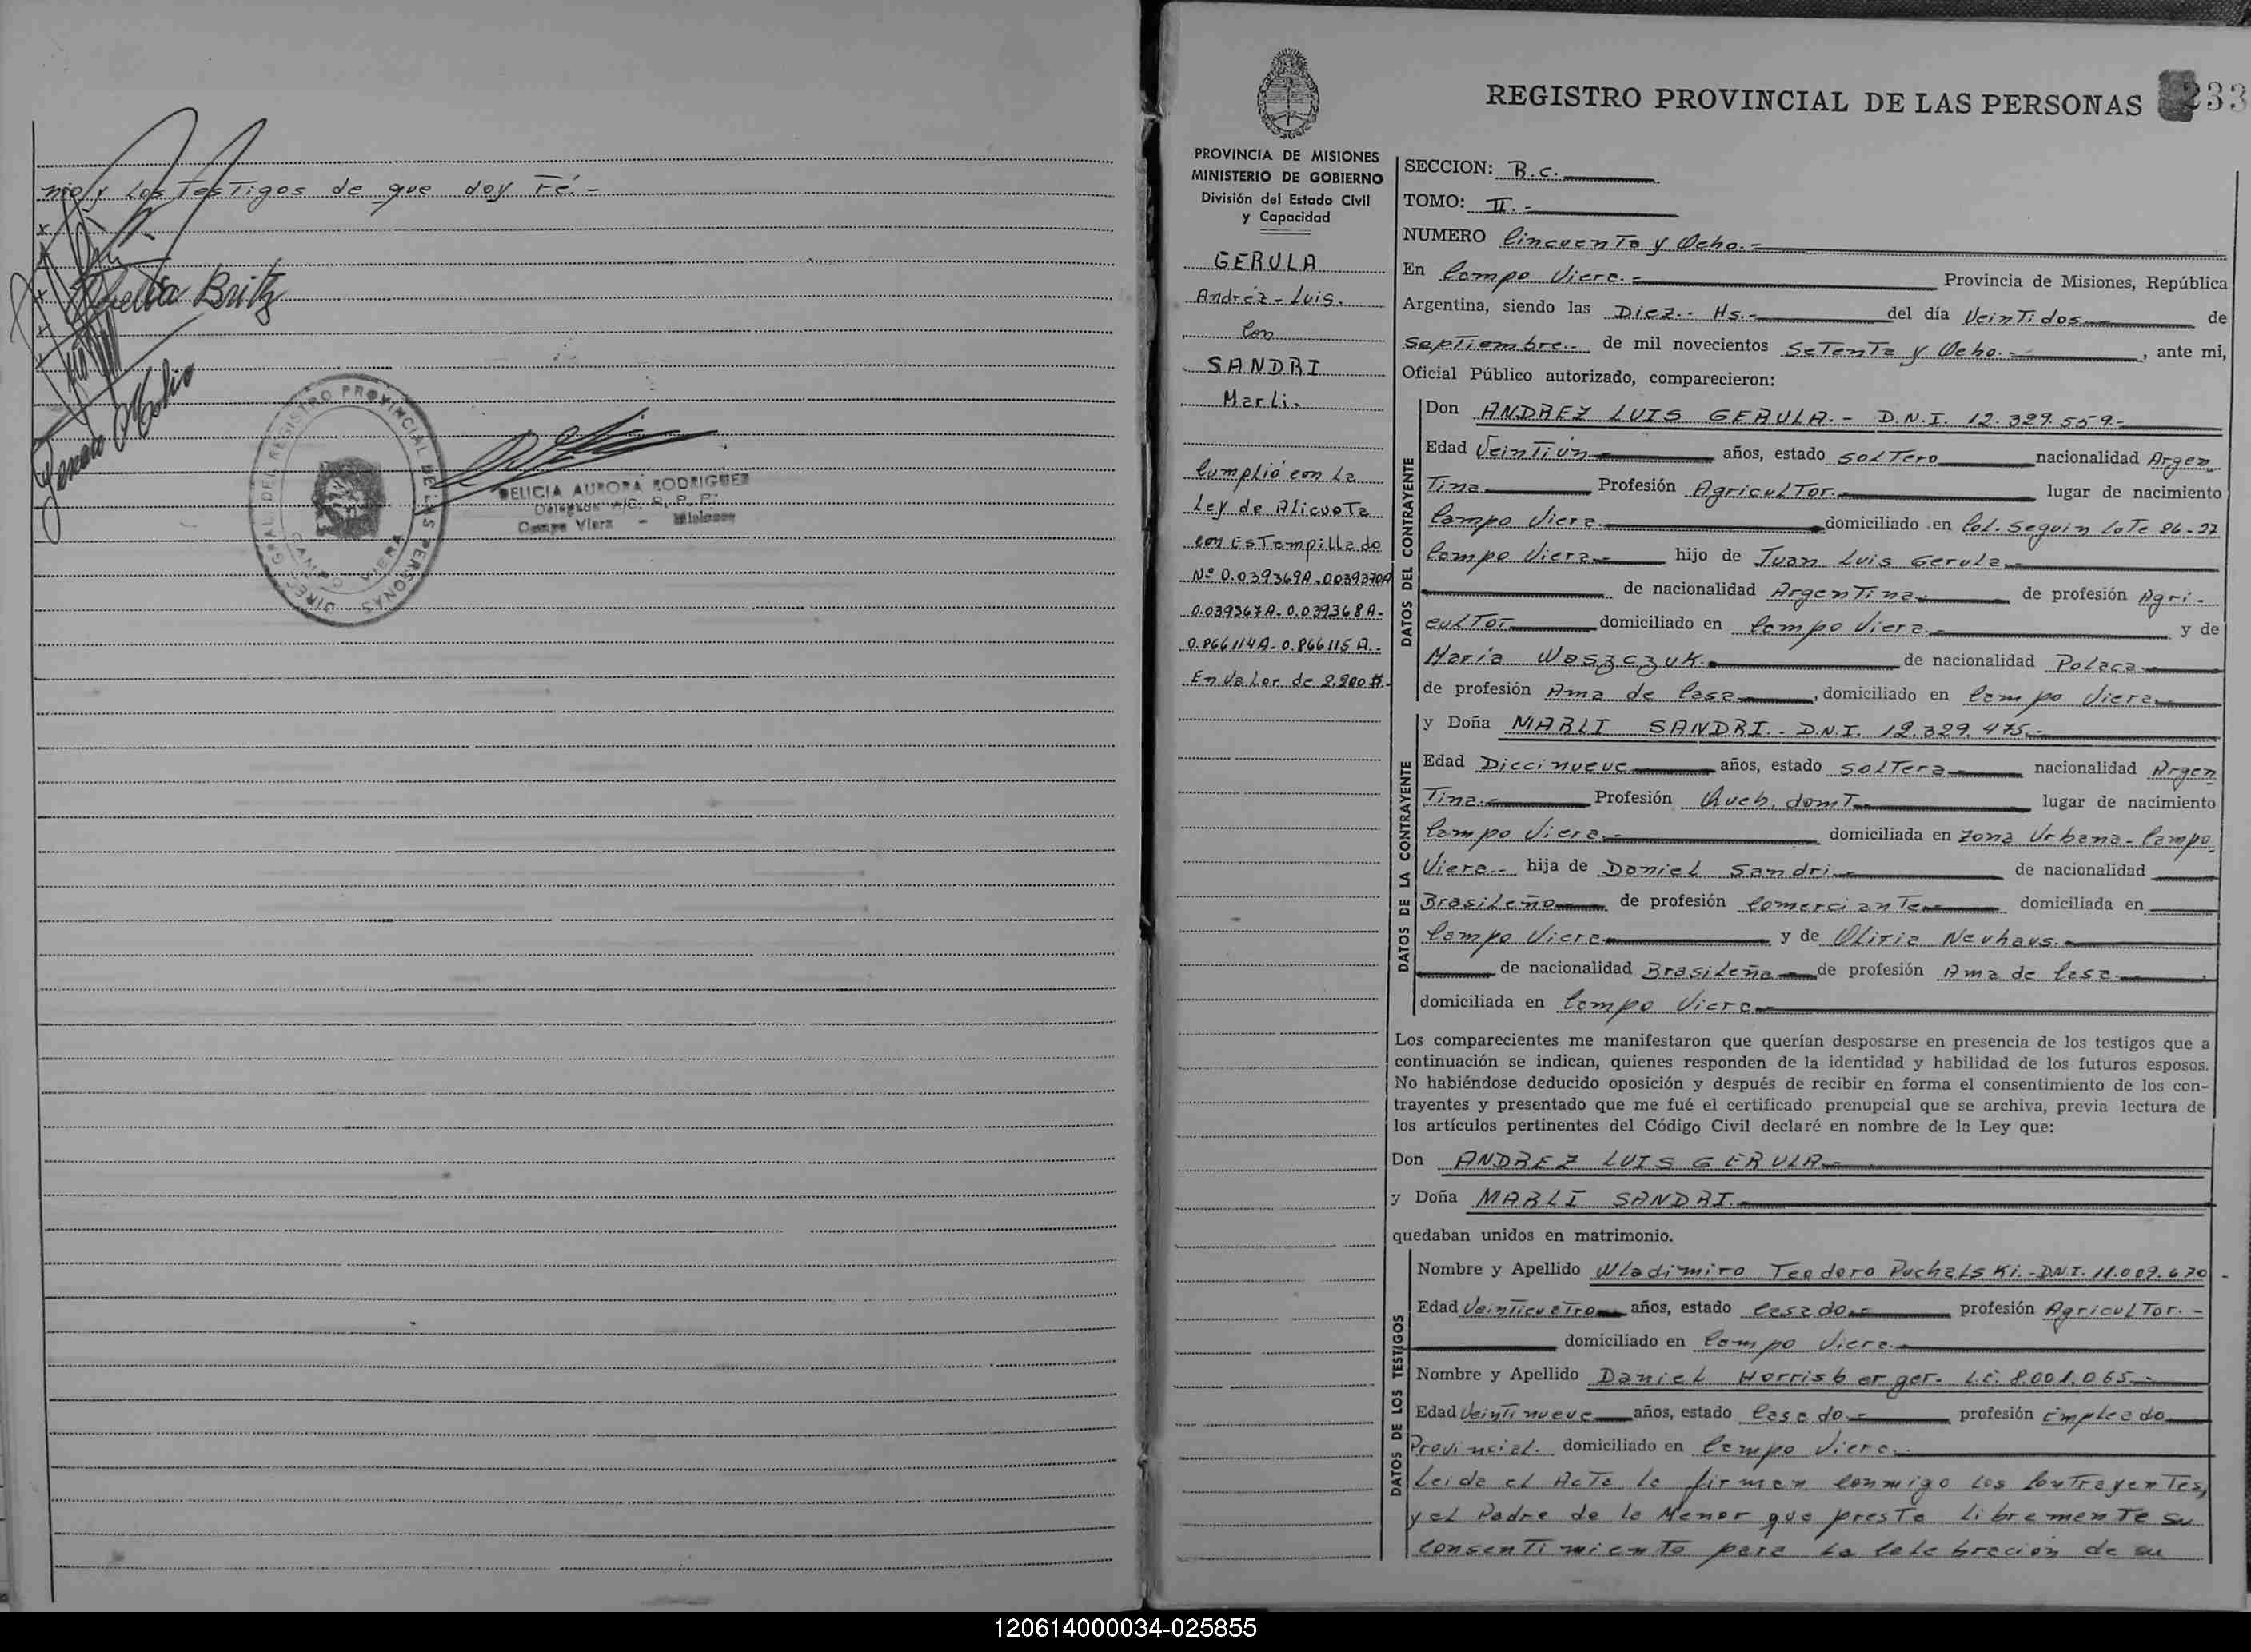 nio y los Testigos de que doy Fé.-
Britz
DIREC. GRAL. DEL REGISTRO PROVINCIAL DE LAS PERSONAS
CAMPO VIERA
DELICIA AURORA RODRIGUEZ
Delegada A/C. R. P. P.
Campo Viera - Misiones
REGISTRO PROVINCIAL DE LAS PERSONAS 233
PROVINCIA DE MISIONES
MINISTERIO DE GOBIERNO
División del Estado Civil
y Capacidad
GERULA
Andréz-Luis.
Con
SANDRI
Marli.
Cumplió con La
Ley de Alicuota
con Estampillado
Nº 0.039369A-0.039370A
0.039367A-0.039368A-
0.866114A-0.866115A.-
En Valor de 2.200 $.-
SECCION: R.C.
TOMO: II.-
NUMERO Cincuenta y Ocho.-
En Campo Viera.- Provincia de Misiones, República
Argentina, siendo las Diez.- Hs.- del día Veintidos de
Septiembre.- de mil novecientos Setenta y Ocho.- , ante mi,
Oficial Público autorizado, comparecieron:
DATOS DEL CONTRAYENTE
Don ANDREZ LUIS GERULA.- D.N.I. 12.329.559.-
Edad Veintiún años, estado Soltero nacionalidad Argen
Tina.- Profesión Agricultor.- lugar de nacimiento
Campo Viera.- domiciliado en Col. Seguin Lote 26-27
Campo Viera.- hijo de Juan Luis Gerula.-
de nacionalidad Argentina.- de profesión Agri-
cultor domiciliado en Campo Viera.- y de
María Woszczuk.- de nacionalidad Polaca.-
de profesión Ama de Casa , domiciliado en Campo Viera.-
DATOS DE LA CONTRAYENTE
y Doña MARLI SANDRI.- D.N.I. 12.329.475.-
Edad Diecinueve años, estado Soltera nacionalidad Argen
Tina.- Profesión Queh. domt. lugar de nacimiento
Campo Viera.- domiciliada en zona Urbana-Campo
Viera.- hija de Daniel Sandri.- de nacionalidad
Brasileño de profesión Comerciante domiciliada en
Campo Viera y de Oliria Neuhaus.-
de nacionalidad Brasileña de profesión Ama de Casa.-
domiciliada en Campo Viera.-
Los comparecientes me manifestaron que querían desposarse en presencia de los testigos que a
continuación se indican, quienes responden de la identidad y habilidad de los futuros esposos.
No habiéndose deducido oposición y después de recibir en forma el consentimiento de los con-
trayentes y presentado que me fué el certificado prenupcial que se archiva, previa lectura de
los artículos pertinentes del Código Civil declaré en nombre de la Ley que:
Don ANDREZ LUIS GERULA.-
y Doña MARLI SANDRI.-
quedaban unidos en matrimonio.
DATOS DE LOS TESTIGOS
Nombre y Apellido Wladimiro Teodoro Puchalski.-D.N.I. 11.009.670-
Edad Veinticuatro años, estado Casado.- profesión Agricultor.-
domiciliado en Campo Viera.-
Nombre y Apellido Daniel Horrisberger.- L.E. 8.001.065.-
Edad Veintinueve años, estado Casado.- profesión Empleado
Provincial. domiciliado en Campo Viera.-
Leida el Acta la firman conmigo los Contrayentes,
y el Padre de la Menor que presta libremente su
consentimiento para la celebración de su
120614000034-025855